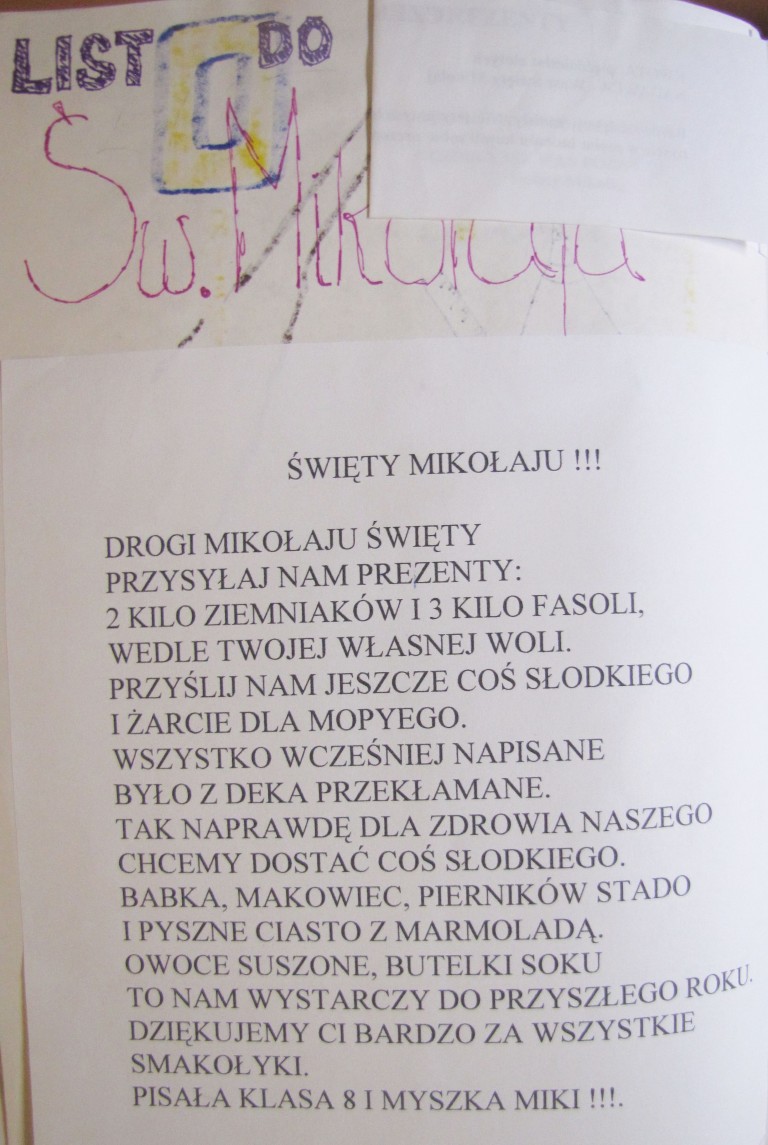 LIST DO
Św. Mikołaja
ŚWIĘTY MIKOŁAJU !!!
DROGI MIKOŁAJU ŚWIĘTY
PRZYSYŁAJ NAM PREZENTY:
2 KILO ZIEMNIAKÓW I 3 KILO FASOLI,
WEDLE TWOJEJ WŁASNEJ WOLI.
PRZYŚLIJ NAM JESZCZE COŚ SŁODKIEGO
I ŻARCIE DLA MOPYEGO.
WSZYSTKO WCZEŚNIEJ NAPISANE
BYŁO Z DEKA PRZEKŁAMANE.
TAK NAPRAWDĘ DLA ZDROWIA NASZEGO
CHCEMY DOSTAĆ COŚ SŁODKIEGO.
BABKA, MAKOWIEC, PIERNIKÓW STADO
I PYSZNE CIASTO Z MARMOLADĄ.
OWOCE SUSZONE, BUTELKI SOKU
TO NAM WYSTARCZY DO PRZYSZŁEGO ROKU.
DZIĘKUJEMY CI BARDZO ZA WSZYSTKIE
SMAKOŁYKI.
PISAŁA KLASA 8 I MYSZKA MIKI !!!.